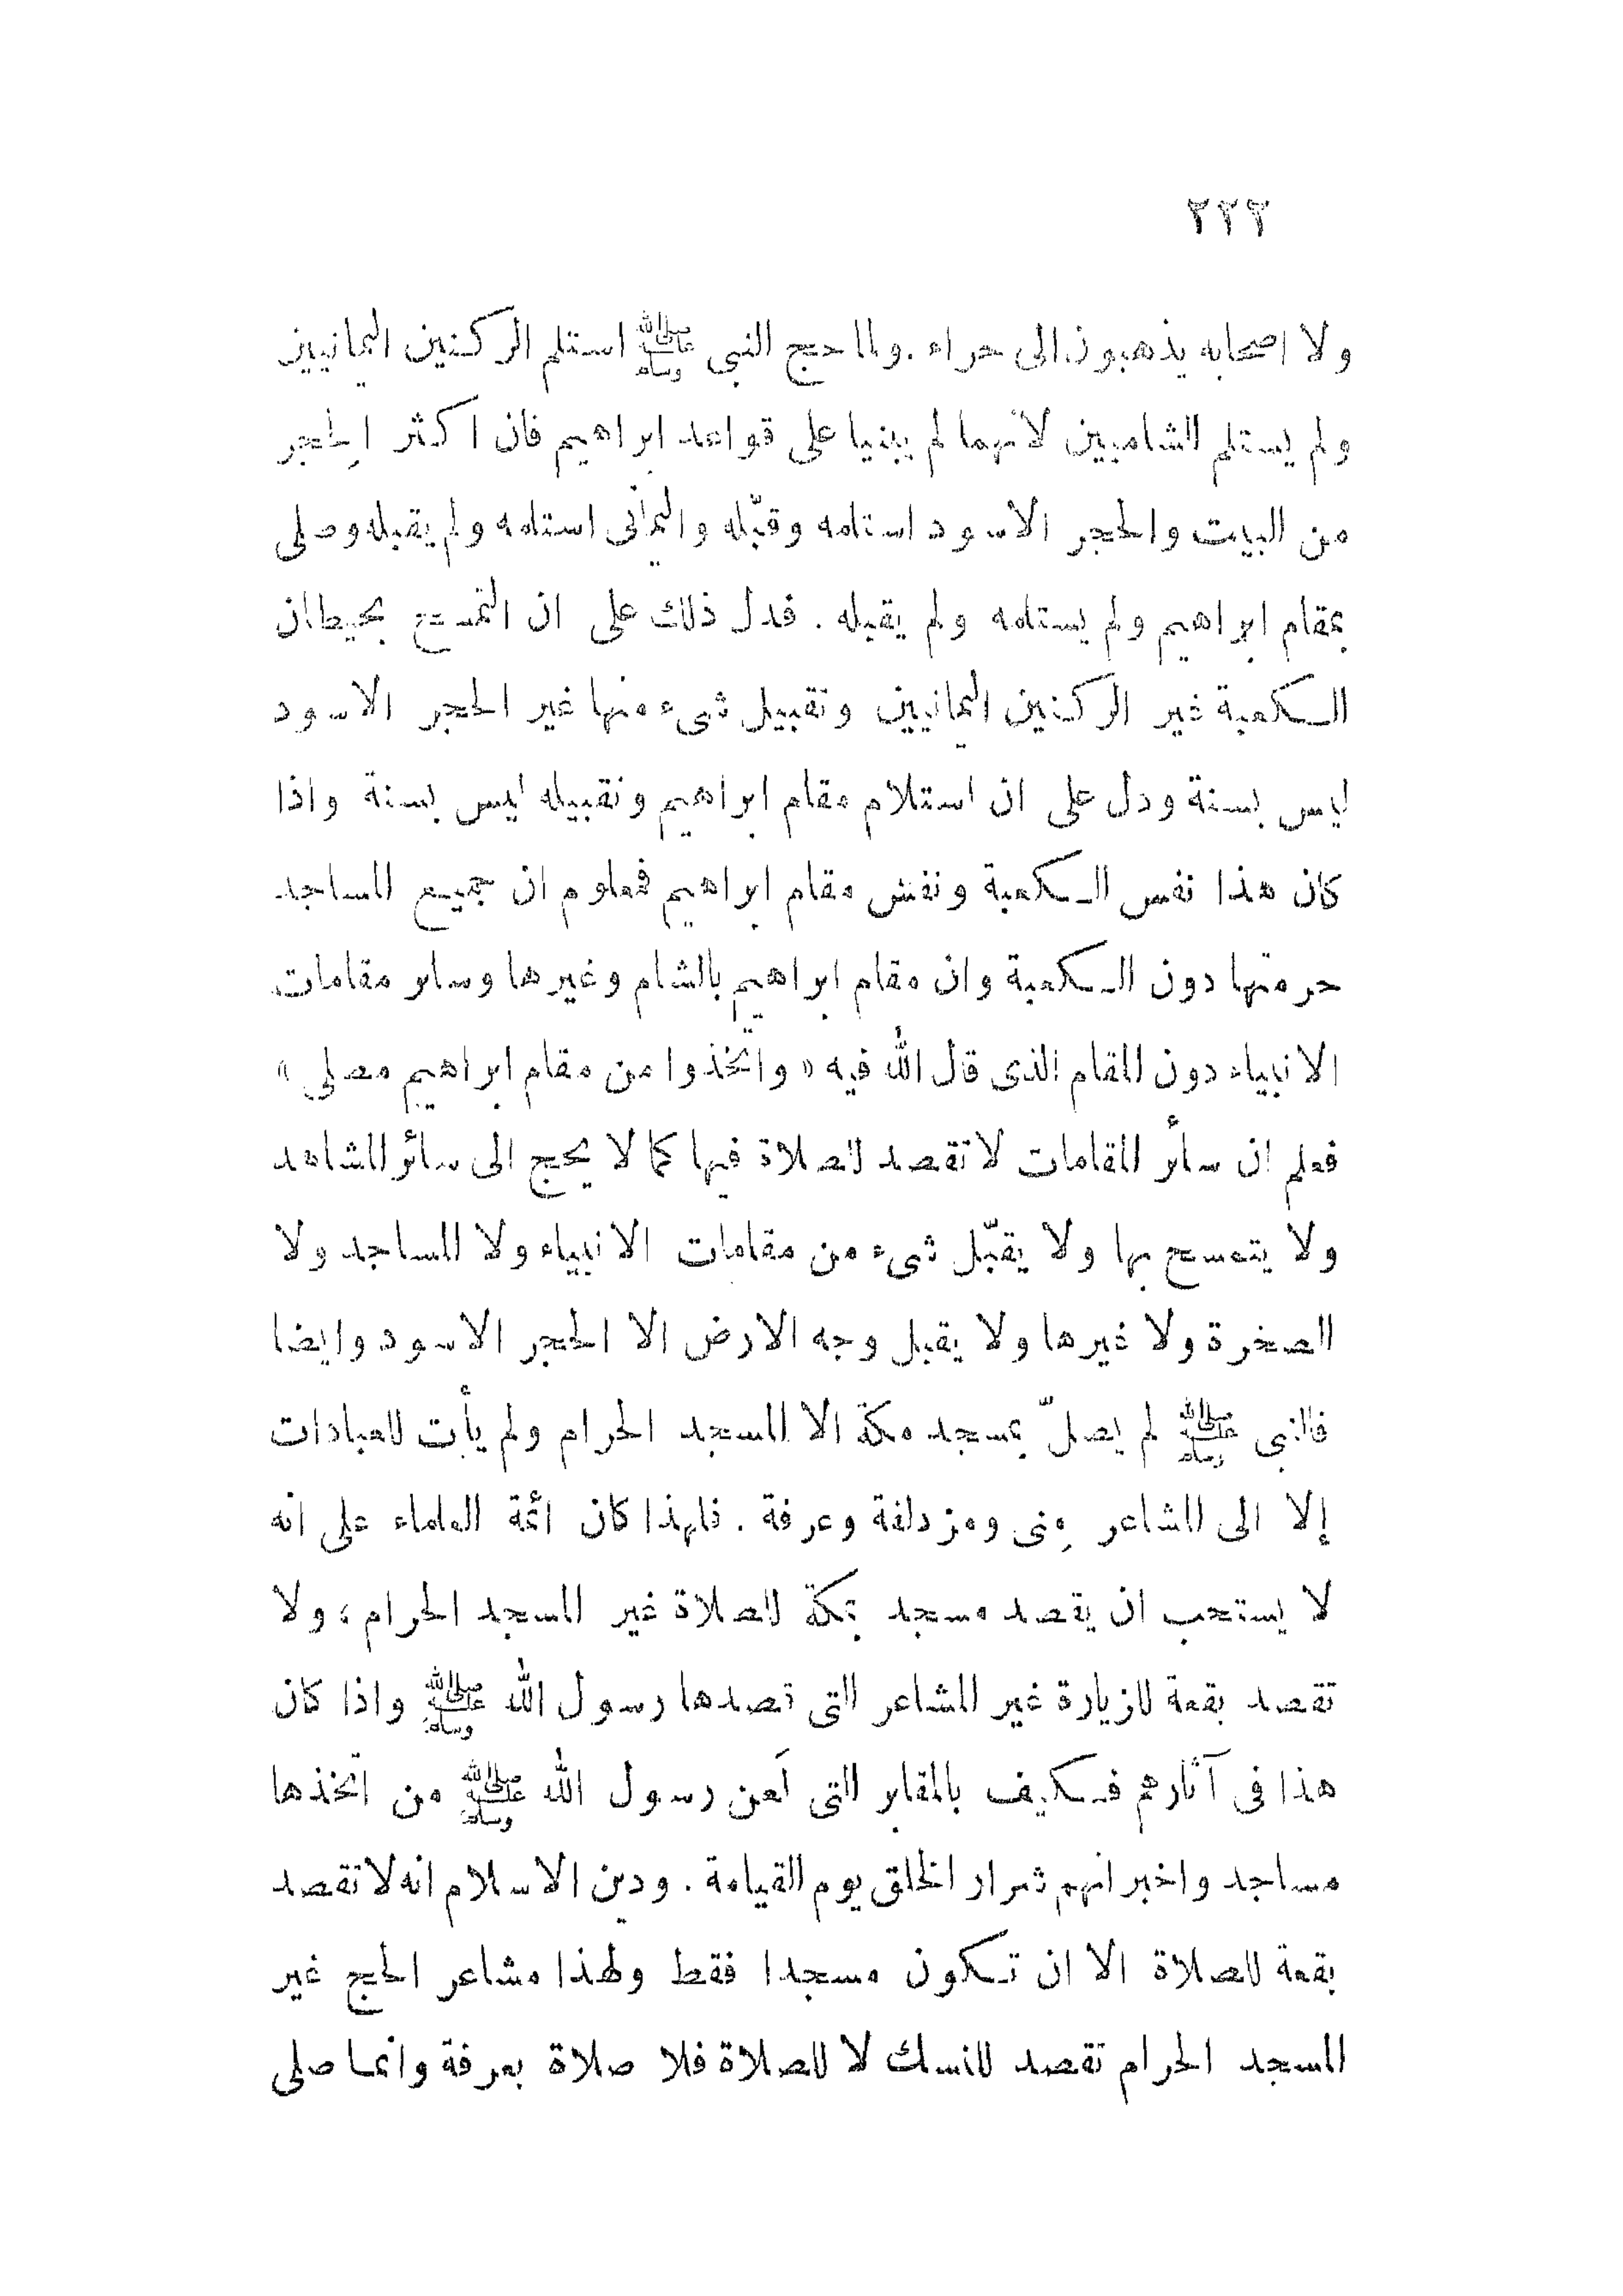 ٢٢٢
ولا اصحابه يذهبون الى حراء . ولما حج النبي ﷺ استلم الركنين اليمانيين
ولم يستلم الشاميين لأنهما لم يبنيا على قواعد ابراهيم فان اكثر الحِجر
من البيت والحجر الاسود استلمه وقبّله واليمانى استلمه ولم يقبله وصلى
بمقام ابراهيم ولم يستلمه ولم يقبله . فدل ذلك على ان التمسح بحيطان
الكعبة غير الركنين اليمانيين وتقبيل شىء منها غير الحجر الاسود
ليس بسنة ودل على ان استلام مقام ابراهيم وتقبيله ليس بسنة واذا
كان هذا نفس الكعبة ونفس مقام ابراهيم فمعلوم ان جميع المساجد
حرمتها دون الكعبة وان مقام ابراهيم بالشام وغيرها وسائر مقامات
الانبياء دون المقام الذى قال الله فيه « واتّخذوا من مقام ابراهيم مصلى »
فعلم ان سائر المقامات لا تقصد للصلاة فيها كما لا يحج الى سائر المشاهد
ولا يتمسح بها ولا يقبّل شىء من مقامات الانبياء ولا المساجد ولا
الصخرة ولا غيرها ولا يقبل وجه الارض الا الحجر الاسود وايضا
فالنبى ﷺ لم يصلّ بمسجد مكة الا المسجد الحرام ولم يأت للعبادات
إلا الى المشاعر مِنى ومزدلفة وعرفة . فلهذا كان ائمة العلماء على انه
لا يستحب ان يقصد مسجد بمكة للصلاة غير المسجد الحرام ، ولا
تقصد بقعة للزيارة غير المشاعر التى قصدها رسول الله ﷺ واذا كان
هذا فى آثارهم فكيف بالمقابر التى لَعن رسول الله ﷺ من اتّخذها
مساجد واخبر انهم شرار الخلق يوم القيامة . ودين الاسلام انه لا تقصد
بقعة للصلاة الا ان تكون مسجدا فقط ولهذا مشاعر الحج غير
المسجد الحرام تقصد للنسك لا للصلاة فلا صلاة بعرفة وانما صلى